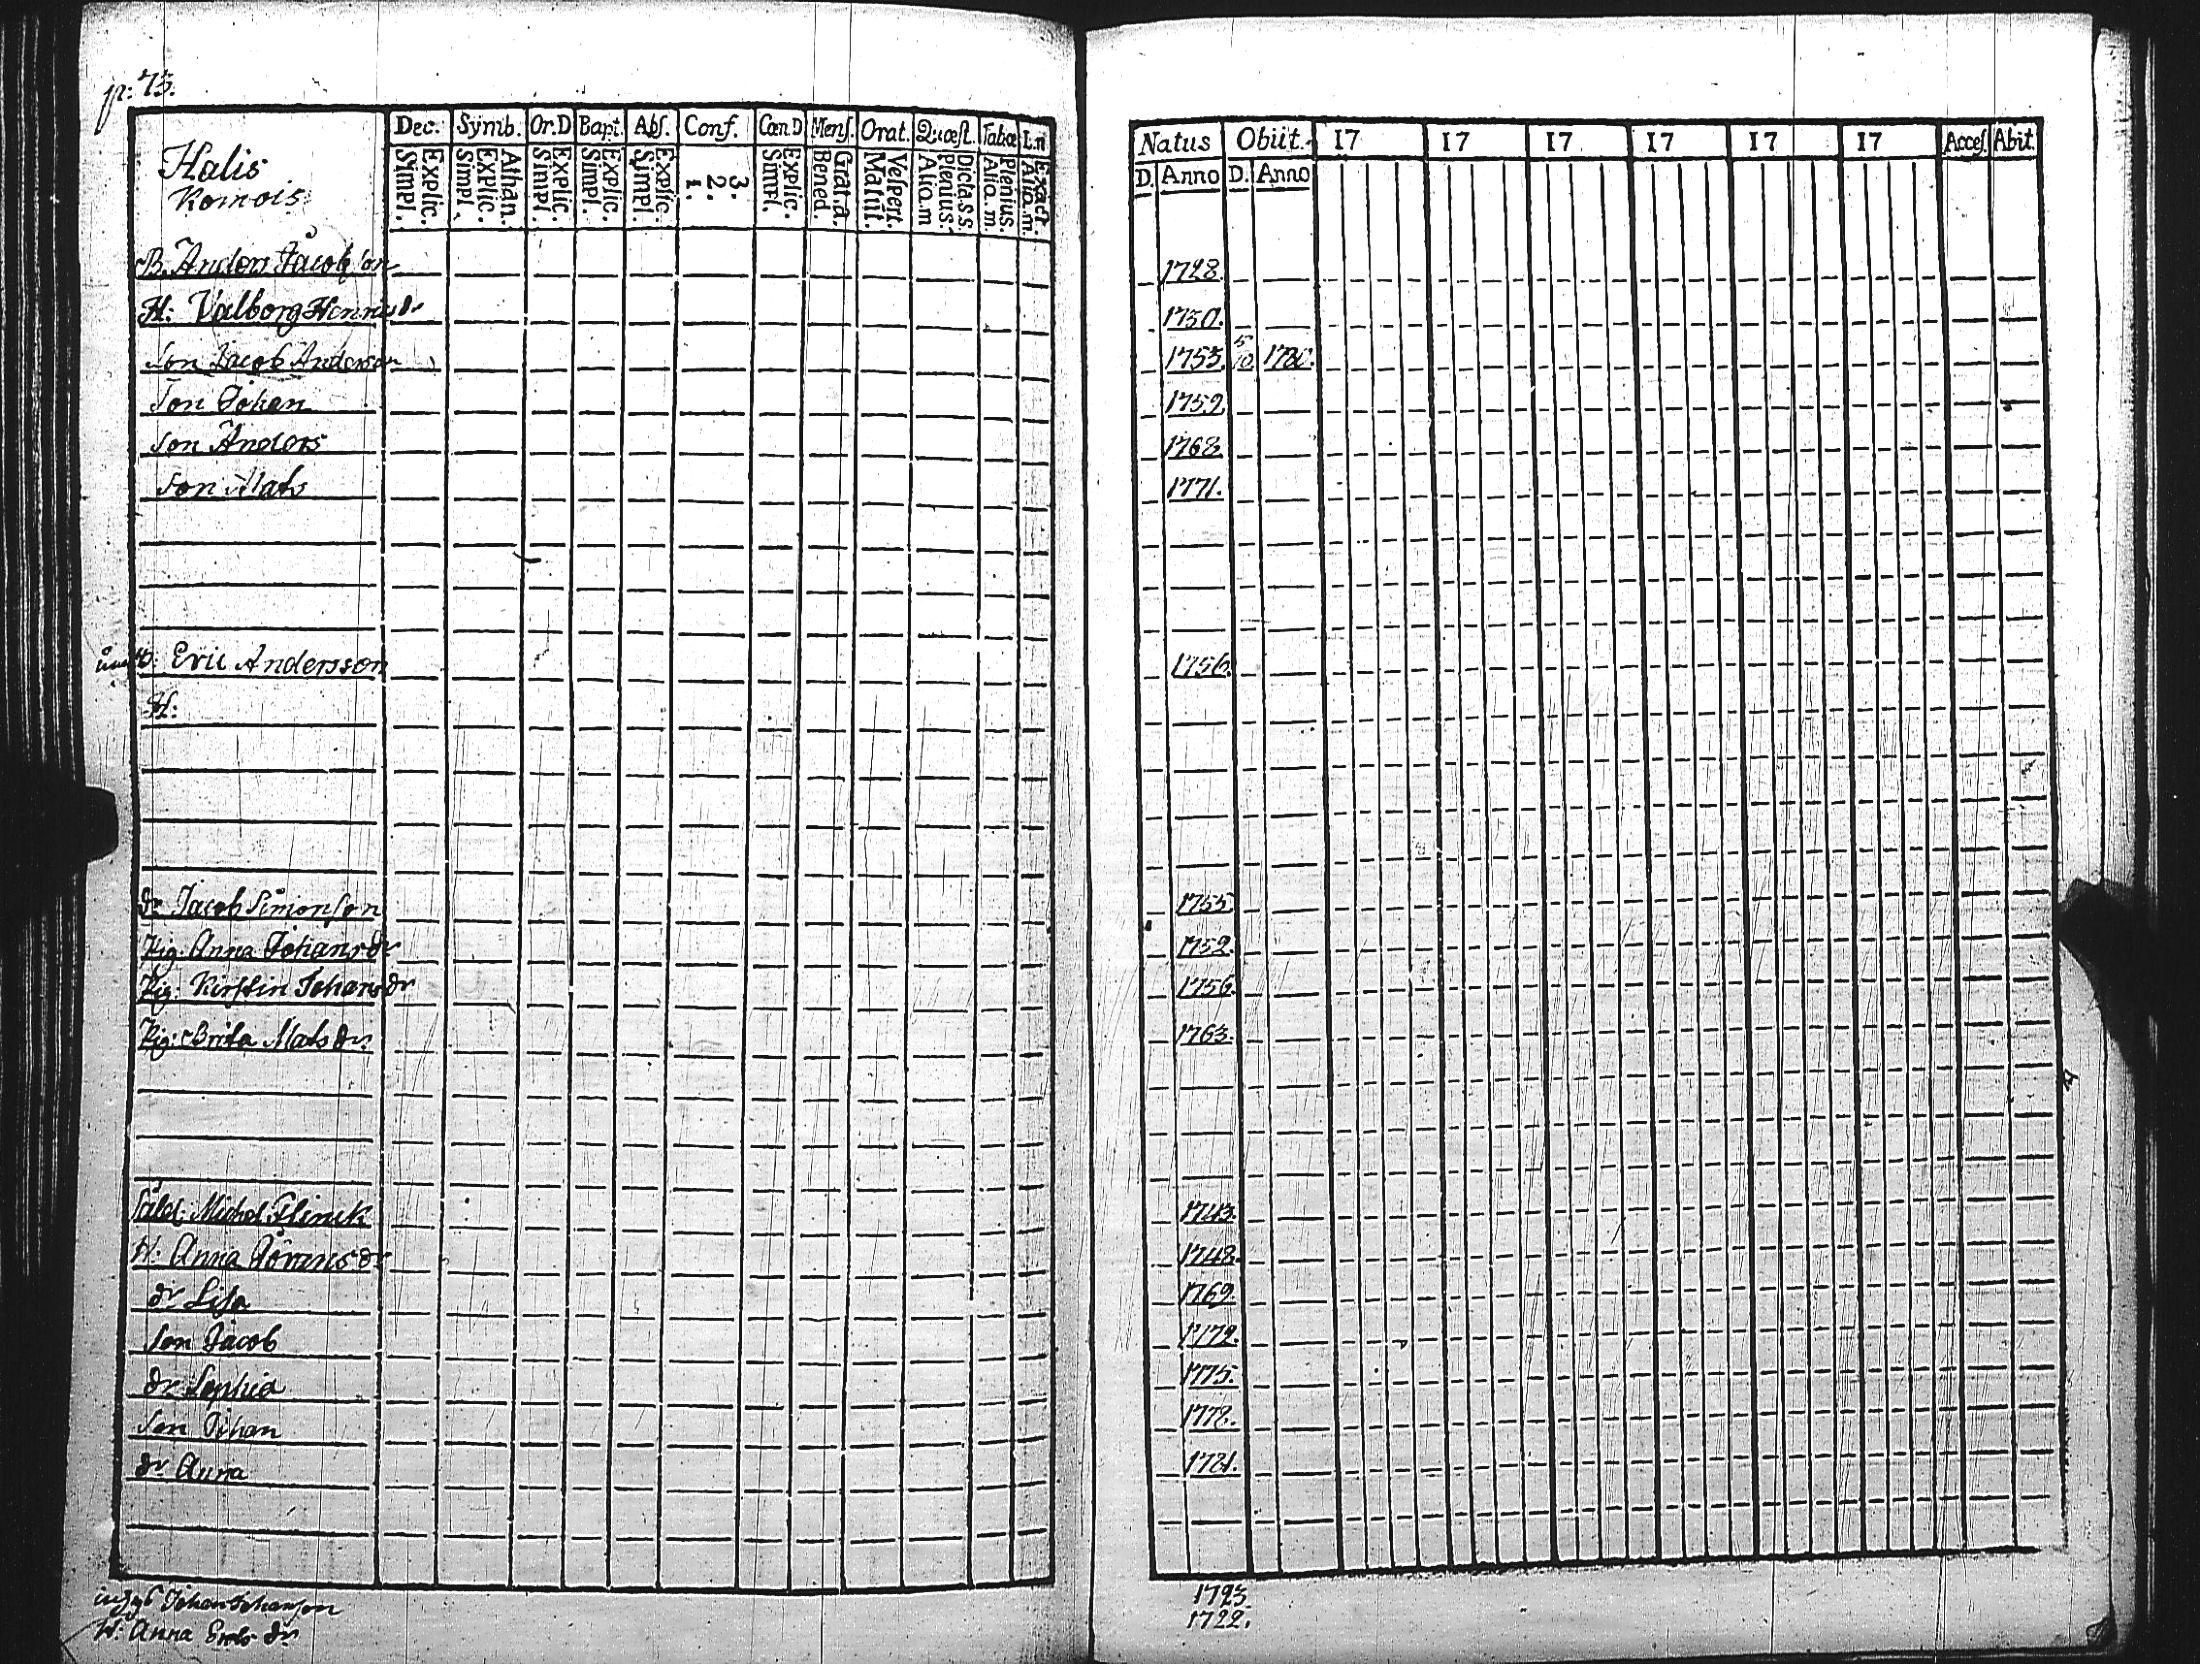 p: 73.
Halis
Komois
Dec. Symb. Or.D Bapt. Abs. Conf. Cœn.D Mens. Orat. Quæst. Tab.œ L.n
Explic. Simpl. Athan. Explic. Simpl. Explic. Simpl. Explic. Simpl. Explic. Simpl. 3. 2. 1. Explic. Simpl. Grat.a. Bened. Vespert. Matut. Dicta.s.s. Plenius. Aliq.m Plenius. Aliq.m Exact. Aliq.m
Natus Obiit. 17 17 17 17 17 17 Acces. Abit.
D. Anno D. Anno
B. Anders Jacobson 1728.
H: Valborg Henricsdr 1730.
Son Jacob Anderson 1753. 5/10 1780.
Son Johan 1759.
Son Anders 1768.
Son Mats 1771.
Eric Andersson 1756.
H:
dr Jacob Simonson 1755.
Pig. Anna Johansdr 1752.
Pig: Kirstin Johansdr 1756.
Pig: Brita Mats dr. 1763.
Såld: Michel Flinck 1743.
H: Anna Göransdr 1748.
dr Lisa 1769.
Son Jacob 1772.
dr Sophia 1775.
Son Johan 1778.
dr Anna 1781.
Johan Johanson 1723.
H: Anna Ersdr 1722.